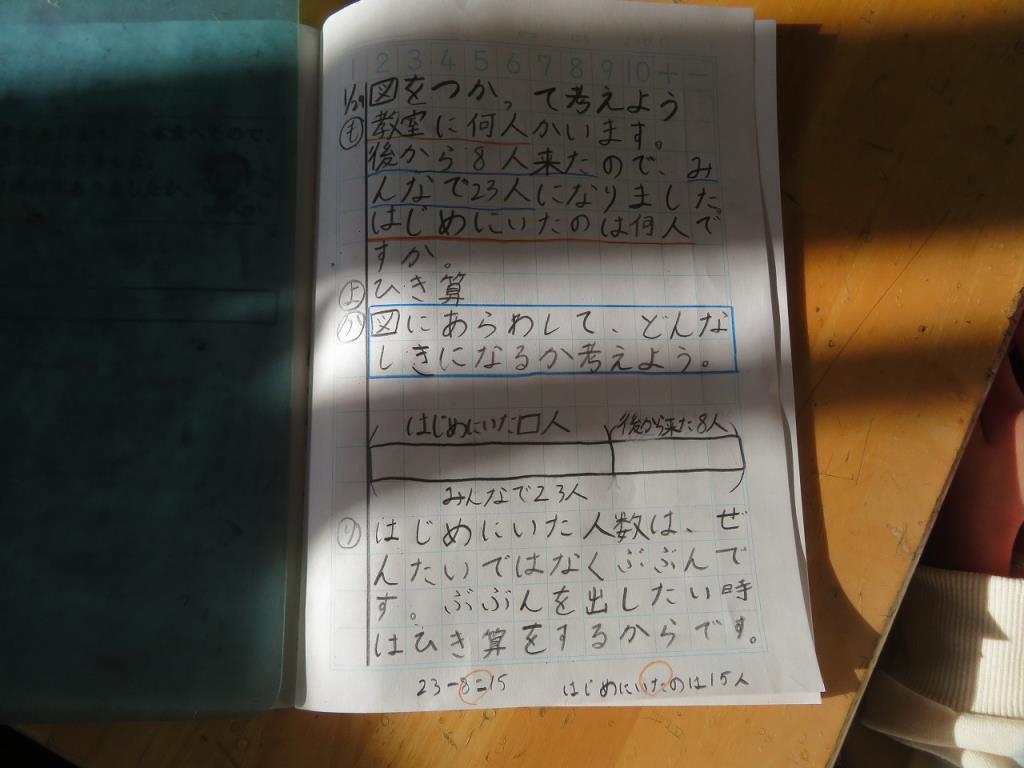 1 2 3 4 5 6 7 8 9 10 + −
1/29 図をつかって考えよう
も 教室に何人かいます。
後から8人来たので、み
んなで23人になりました。
はじめにいたのは何人で
すか。
よ ひき算
図にあらわして、どんな
しきになるか考えよう。
はじめにいた□人 後から来た8人
みんなで23人
り はじめにいた人数は、ぜ
んたいではなくぶぶんで
す。ぶぶんを出したい時
はひき算をするからです。
23−8=15 はじめにいたのは15人